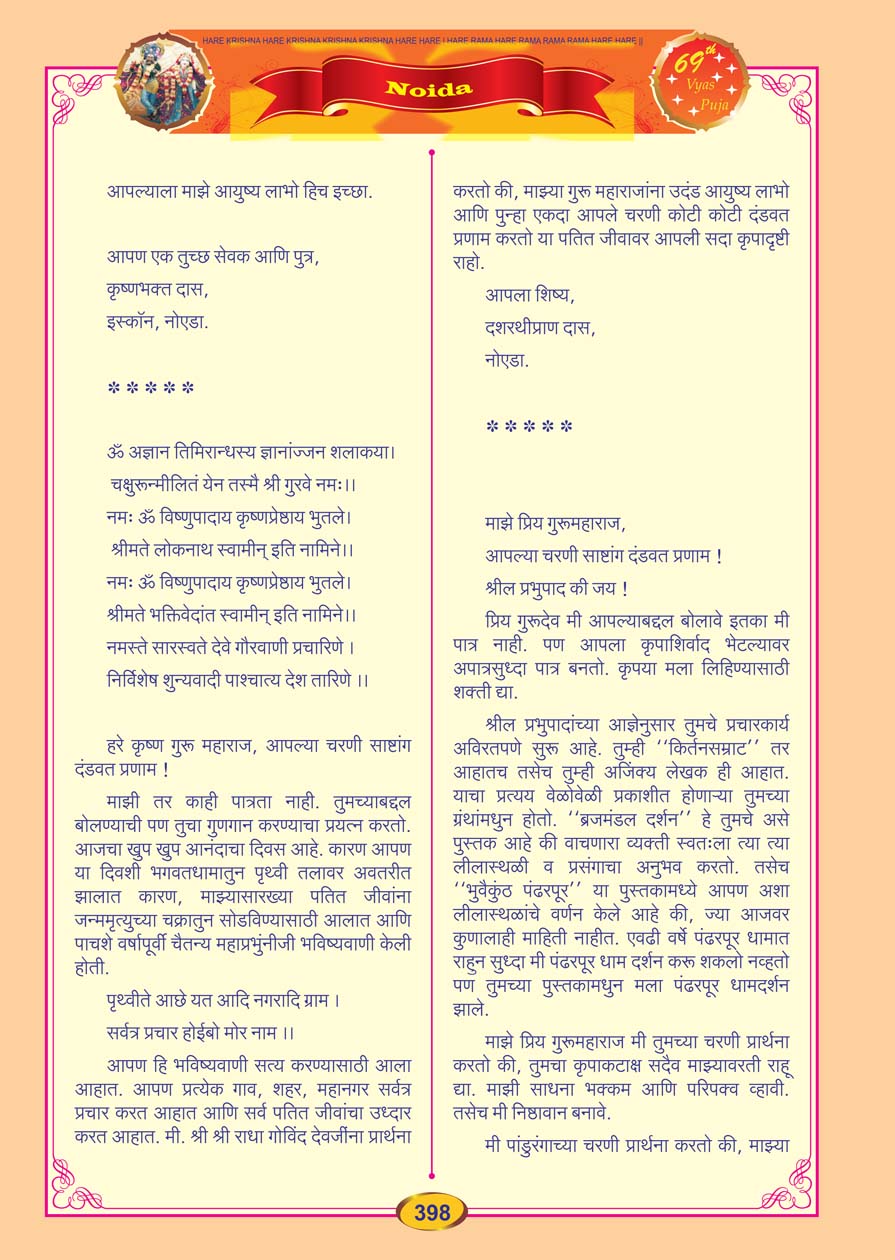 HARE KRISHNA HARE KRISHNA KRISHNA KRISHNA HARE HARE | HARE RAMA HARE RAMA RAMA RAMA HARE HARE ||
Noida
69th
Vyas
Puja
आपल्याला माझे आयुष्य लाभो हिच इच्छा.
आपण एक तुच्छ सेवक आणि पुत्र,
कृष्णभक्त दास,
इस्कॉन, नोएडा.
* * * * *
ॐ अज्ञान तिमिरान्धस्य ज्ञानांज्जन शलाकया।
चक्षुरून्मीलितं येन तस्मै श्री गुरवे नमः।।
नमः ॐ विष्णुपादाय कृष्णप्रेष्ठाय भुतले।
श्रीमते लोकनाथ स्वामीन् इति नामिने।।
नमः ॐ विष्णुपादाय कृष्णप्रेष्ठाय भुतले।
श्रीमते भक्तिवेदांत स्वामीन् इति नामिने।।
नमस्ते सारस्वते देवे गौरवाणी प्रचारिणे ।
निर्विशेष शुन्यवादी पाश्चात्य देश तारिणे ।।
हरे कृष्ण गुरू महाराज, आपल्या चरणी साष्टांग
दंडवत प्रणाम !
माझी तर काही पात्रता नाही. तुमच्याबद्दल
बोलण्याची पण तुचा गुणगान करण्याचा प्रयत्न करतो.
आजचा खुप खुप आनंदाचा दिवस आहे. कारण आपण
या दिवशी भगवतधामातुन पृथ्वी तलावर अवतरीत
झालात कारण, माझ्यासारख्या पतित जीवांना
जन्ममृत्युच्या चक्रातुन सोडविण्यासाठी आलात आणि
पाचशे वर्षापूर्वी चैतन्य महाप्रभुंनीजी भविष्यवाणी केली
होती.
पृथ्वीते आछे यत आदि नगरादि ग्राम ।
सर्वत्र प्रचार होईबो मोर नाम ।।
आपण हि भविष्यवाणी सत्य करण्यासाठी आला
आहात. आपण प्रत्येक गाव, शहर, महानगर सर्वत्र
प्रचार करत आहात आणि सर्व पतित जीवांचा उध्दार
करत आहात. मी. श्री श्री राधा गोविंद देवजींना प्रार्थना
करतो की, माझ्या गुरू महाराजांना उदंड आयुष्य लाभो
आणि पुन्हा एकदा आपले चरणी कोटी कोटी दंडवत
प्रणाम करतो या पतित जीवावर आपली सदा कृपादृष्टी
राहो.
आपला शिष्य,
दशरथीप्राण दास,
नोएडा.
* * * * *
माझे प्रिय गुरूमहाराज,
आपल्या चरणी साष्टांग दंडवत प्रणाम !
श्रील प्रभुपाद की जय !
प्रिय गुरूदेव मी आपल्याबद्दल बोलावे इतका मी
पात्र नाही. पण आपला कृपाशिर्वाद भेटल्यावर
अपात्रसुध्दा पात्र बनतो. कृपया मला लिहिण्यासाठी
शक्ती द्या.
श्रील प्रभुपादांच्या आज्ञेनुसार तुमचे प्रचारकार्य
अविरतपणे सुरू आहे. तुम्ही ‘‘किर्तनसम्राट’’ तर
आहातच तसेच तुम्ही अजिंक्य लेखक ही आहात.
याचा प्रत्यय वेळोवेळी प्रकाशीत होणाऱ्या तुमच्या
ग्रंथांमधुन होतो. ‘‘ब्रजमंडल दर्शन’’ हे तुमचे असे
पुस्तक आहे की वाचणारा व्यक्ती स्वतःला त्या त्या
लीलास्थळी व प्रसंगाचा अनुभव करतो. तसेच
‘‘भुवैकुंठ पंढरपूर’’ या पुस्तकामध्ये आपण अशा
लीलास्थळांचे वर्णन केले आहे की, ज्या आजवर
कुणालाही माहिती नाहीत. एवढी वर्षे पंढरपूर धामात
राहुन सुध्दा मी पंढरपूर धाम दर्शन करू शकलो नव्हतो
पण तुमच्या पुस्तकामधुन मला पंढरपूर धामदर्शन
झाले.
माझे प्रिय गुरूमहाराज मी तुमच्या चरणी प्रार्थना
करतो की, तुमचा कृपाकटाक्ष सदैव माझ्यावरती राहू
द्या. माझी साधना भक्कम आणि परिपक्व व्हावी.
तसेच मी निष्ठावान बनावे.
मी पांडुरंगाच्या चरणी प्रार्थना करतो की, माझ्या
398